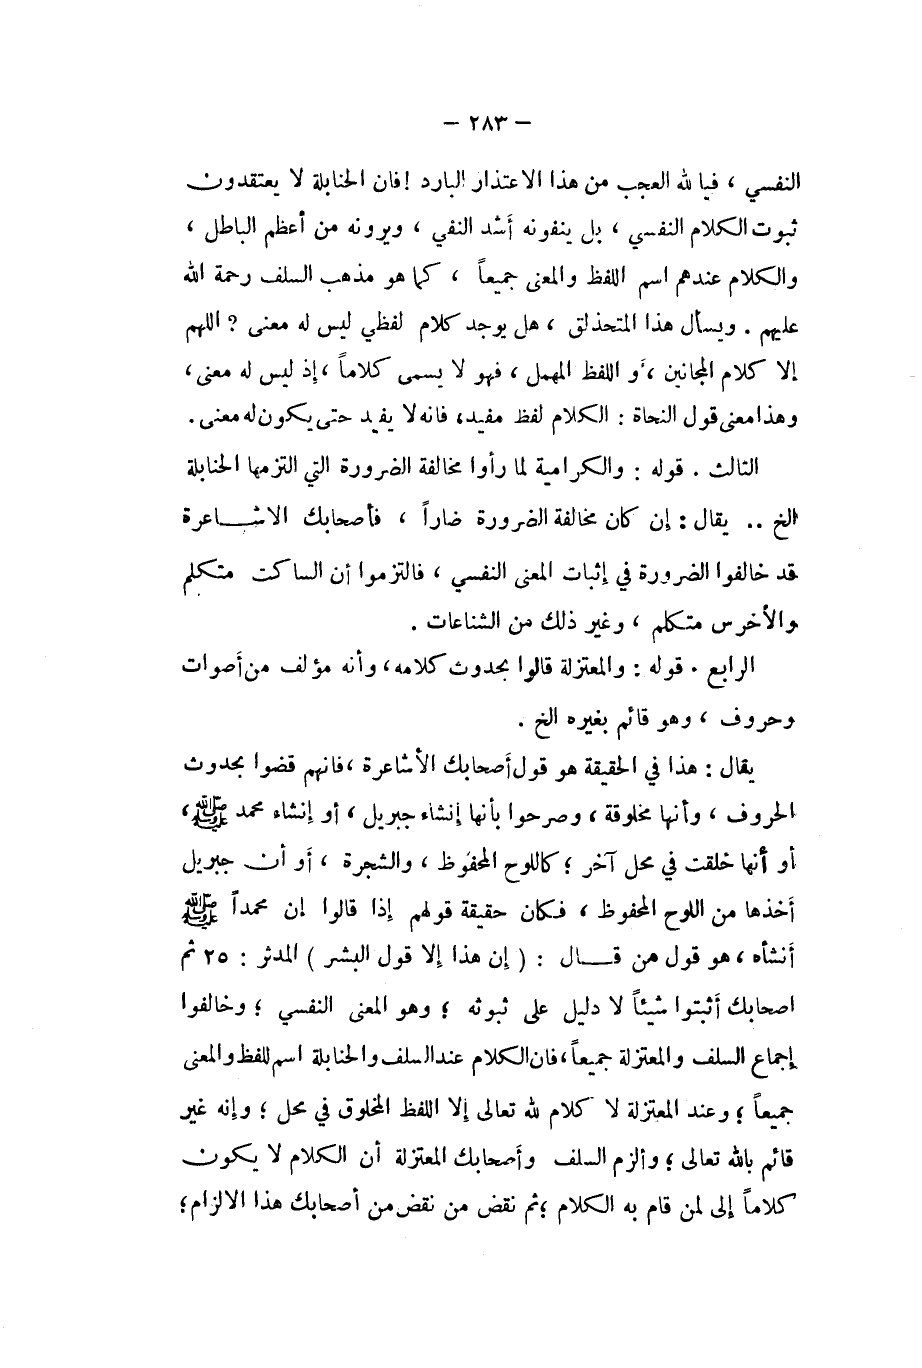 — ٢٨٣ —
النفسي ، فيا لله العجب من هذا الاعتذار البارد ! فان الحنابلة لا يعتقدون
ثبوت الكلام النفسي ، بل ينفونه أشد النفي ، ويرونه من أعظم الباطل ،
والكلام عندهم اسم اللفظ والمعنى جميعاً ، كما هو مذهب السلف رحمة الله
عليهم . ويسأل هذا المتحذلق ، هل يوجد كلام لفظي ليس له معنى ? اللهم
إلا كلام المجانين ، أو اللفظ المهمل ، فهو لا يسمى كلاماً ، إذ ليس له معنى ،
وهذا معنى قول النحاة : الكلام لفظ مفيد، فانه لا يفيد حتى يكون له معنى .
الثالث . قوله : والكرامية لما رأوا مخالفة الضرورة التي التزمها الحنابلة
الخ .. يقال : إن كان مخالفة الضرورة ضاراً ، فأصحابك الاشاعرة
قد خالفوا الضرورة في إثبات المعنى النفسي ، فالتزموا أن الساكت متكلم
والأخرس متكلم ، وغير ذلك من الشناعات .
الرابع . قوله : والمعتزلة قالوا بحدوث كلامه، وأنه مؤلف من أصوات
وحروف ، وهو قائم بغيره الخ .
يقال : هذا في الحقيقة هو قول أصحابك الأشاعرة ، فانهم قضوا بحدوث
الحروف ، وأنها مخلوقة ، وصرحوا بأنها إنشاء جبريل ، أو إنشاء محمد ﷺ ،
أو أنها خلقت في محل آخر ؛ كاللوح المحفوظ ، والشجرة ، أو أن جبريل
أخذها من اللوح المحفوظ ، فكان حقيقة قولهم إذا قالوا إن محمداً ﷺ
أنشأه ، هو قول من قال : ( إن هذا إلا قول البشر ) المدثر : ٢٥ ثم
اصحابك أثبتوا شيئاً لا دليل على ثبوته ؛ وهو المعنى النفسي ؛ وخالفوا
إجماع السلف والمعتزلة جميعاً، فان الكلام عند السلف والحنابلة اسم للفظ والمعنى
جميعاً ؛ وعند المعتزلة لا كلام لله تعالى إلا اللفظ المخلوق في محل ؛ وإنه غير
قائم بالله تعالى ؛ وألزم السلف وأصحابك المعتزلة أن الكلام لا يكون
كلاماً إلى لمن قام به الكلام ؛ ثم نقض من نقض من أصحابك هذا الالزام؛